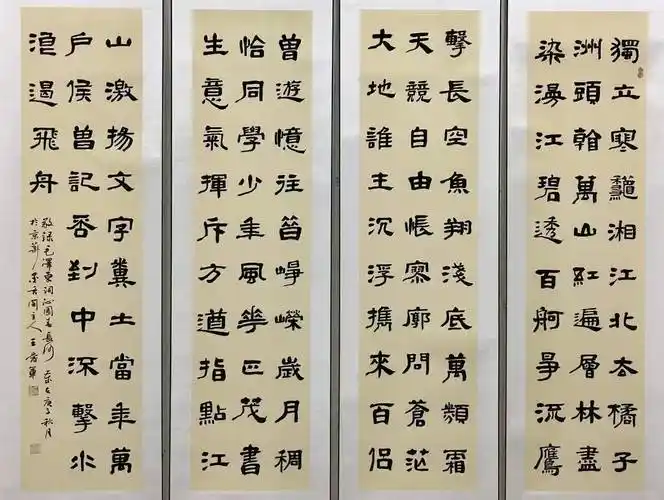 獨立寒龝湘江北去橘子
洲頭看萬山紅遍層林盡
染漫江碧透百舸爭流鷹
擊長空魚翔淺底萬類霜
天競自由悵寥廓問蒼茫
大地誰主沉浮攜來百侶
曾遊憶往昔崢嶸歲月稠
恰同學少年風華正茂書
生意氣揮斥方遒指點江
山激揚文字糞土當年萬
戶侯曾記否到中流擊水
浪遏飛舟
敬錄毛澤東詞沁園春長沙 歲次庚子秋月
於京華 閣主人王